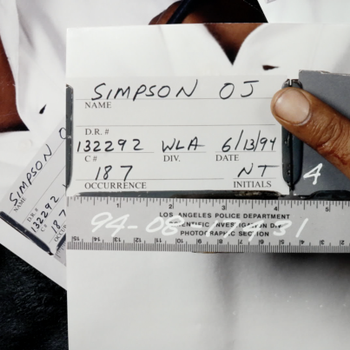 SIMPSON OJ
NAME
D.R.#
132292 WLA 6/13/94
C# DIV. DATE
187 NT
OCCURRENCE INITIALS
4
LOS ANGELES POLICE DEPARTMENT
SCIENTIFIC INVESTIGATION DIV.
PHOTOGRAPHIC SECTION
94-08 31
SIMPSON O
NAME
D.R.#
132292
C#
187